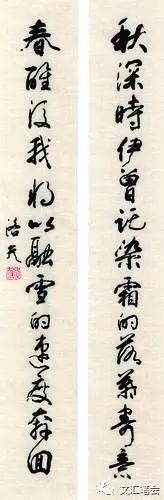 秋深時伊曾託染霜的落葉寄意
春醒後我將以融雪的速度奔回
洛夫
文汇笔会